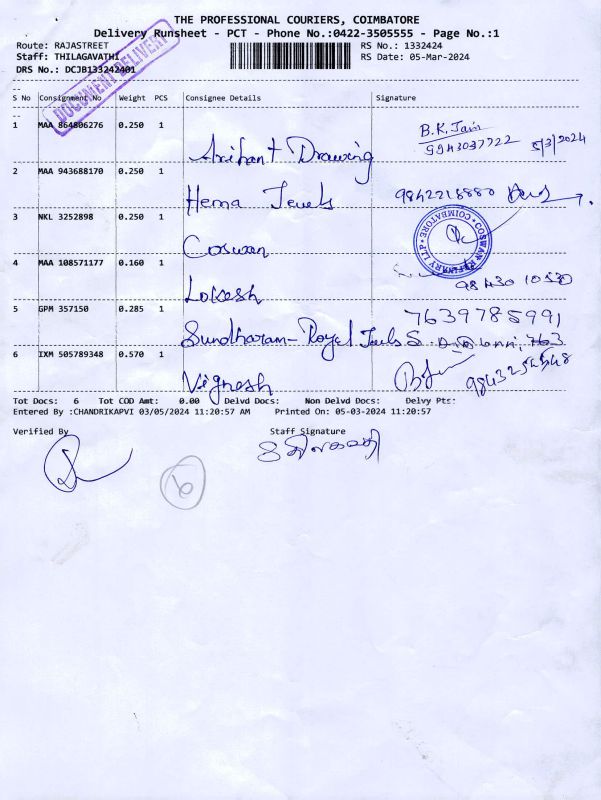 THE PROFESSIONAL COURIERS, COIMBATORE
Delivery Runsheet - PCT - Phone No.:0422-3505555 - Page No.:1
Route: RAJASTREET
RS No.: 1332424
Staff: THILAGAVATHI
RS Date: 05-Mar-2024
DRS No.: DCJB133242401
DOCUMENT DELIVERY
S No Consignment No Weight PCS Consignee Details Signature
1 MAA 864806276 0.250 1 Arihant Drawing B.K. Jain 9943037722 5/3/2024
2 MAA 943688170 0.250 1 Hema Jewels 9842218880
3 NKL 3252898 0.250 1 Coswan
COSWAN REFINARY LLP COIMBATORE
4 MAA 108571177 0.160 1 Lokesh 98430 10530
5 GPM 357150 0.285 1 Sundharam-Royal Jewels 7639785991
6 IXM 505789348 0.570 1 Vignesh
Tot Docs: 6 Tot COD Amt: 0.00 Delvd Docs: Non Delvd Docs: Delvy Pts:
Entered By :CHANDRIKAPVI 03/05/2024 11:20:57 AM Printed On: 05-03-2024 11:20:57
Verified By Staff Signature
6